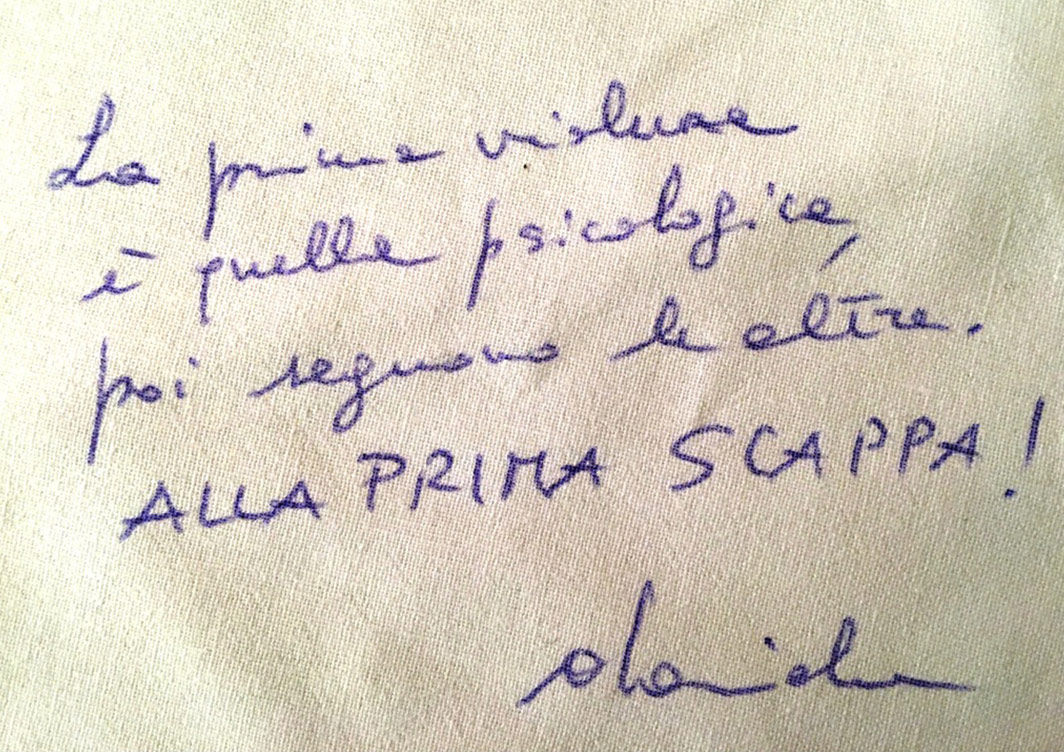 La prima violenza
è quella psicologica,
poi seguono le altre.
ALLA PRIMA SCAPPA!